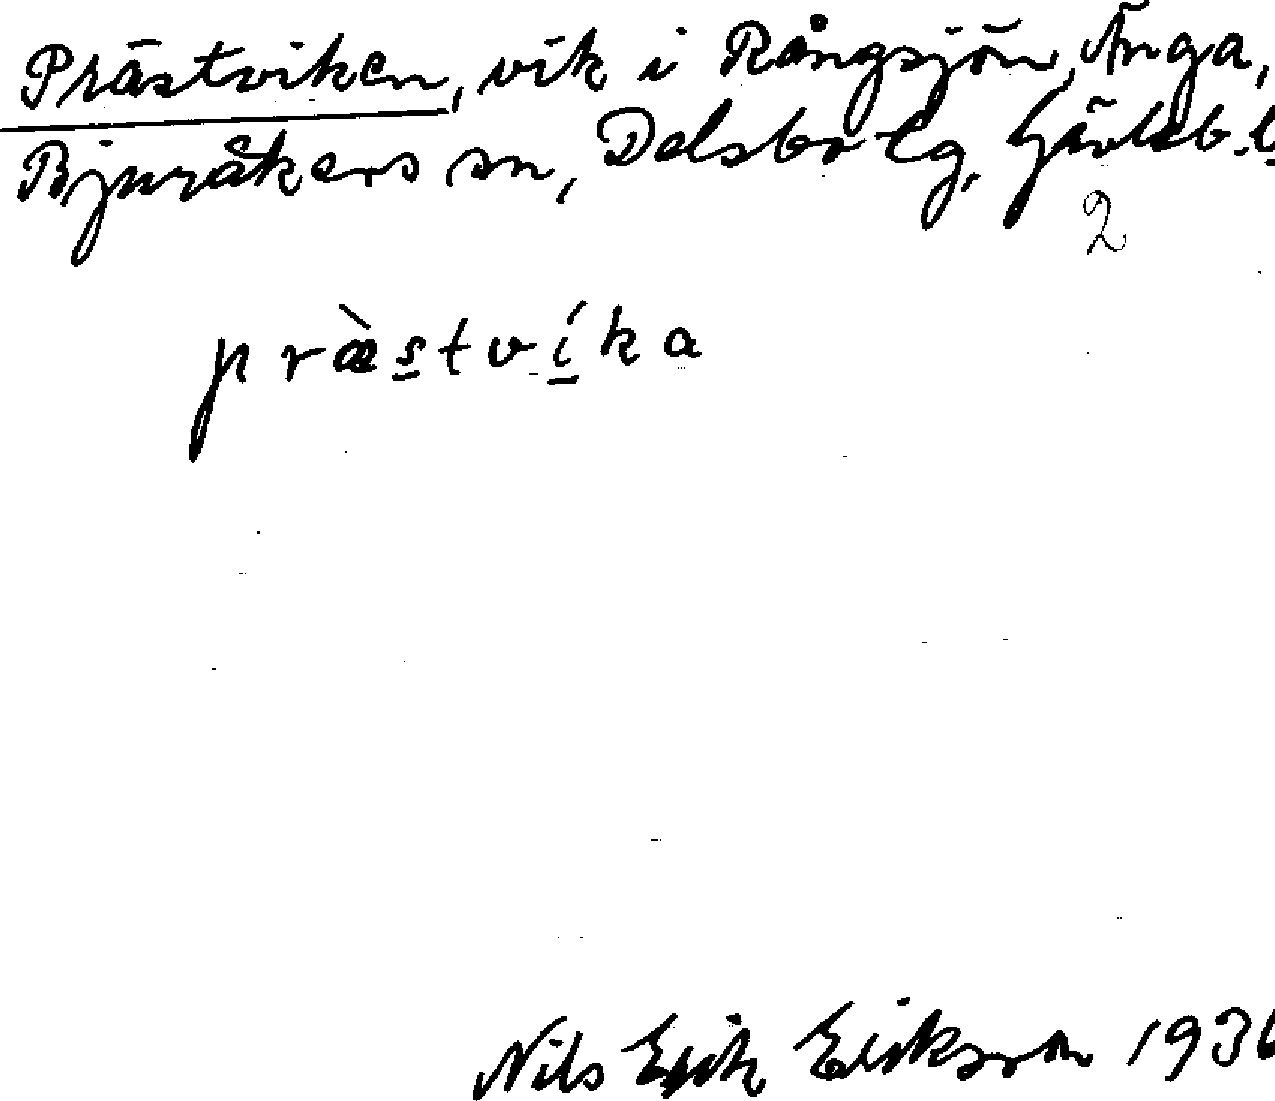 Prästviken, vik i Rångsjön, Änga,
Bjuråkers sn, Delsbo tg, Gävleb. l
2
præ̀stvíka
Nils Erik Eriksson 1936